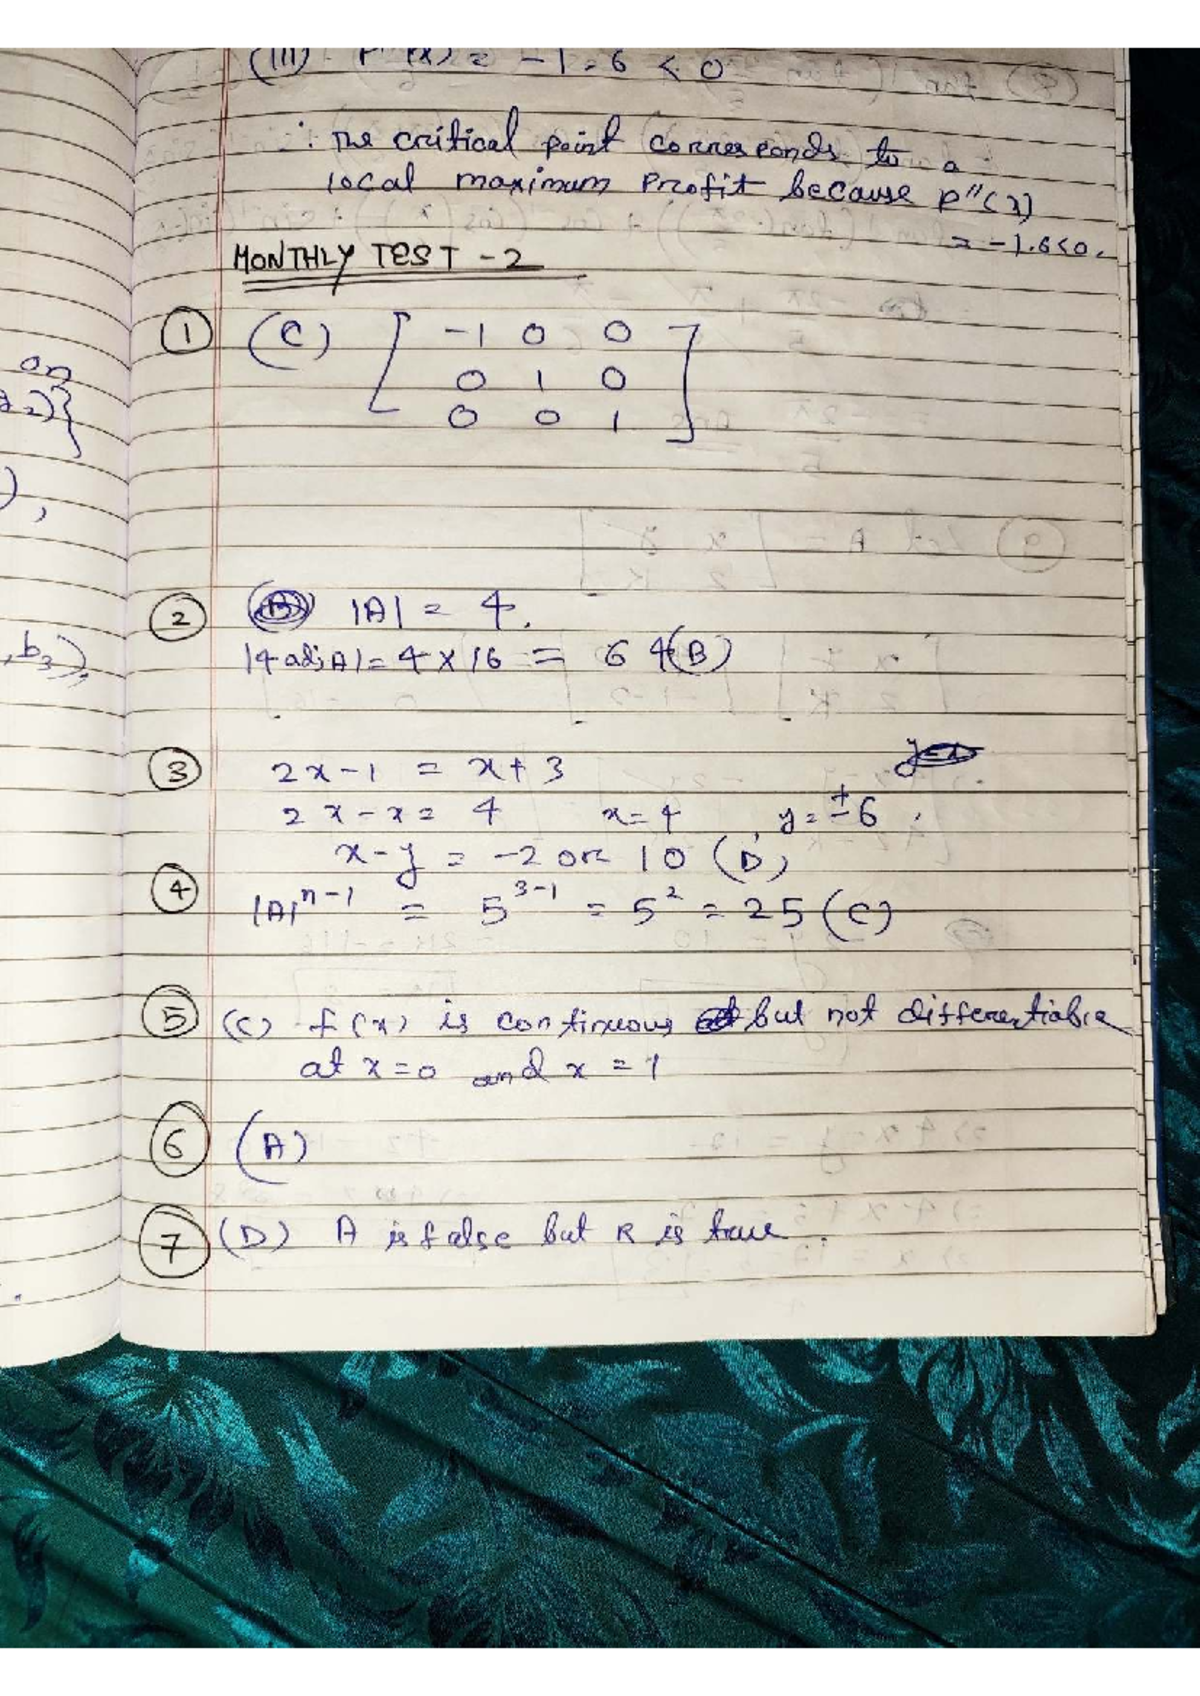 (III) P''(x) = -1.6 < 0
∴ The critical point corresponds to a
local maximum Profit because P''(x)
= -1.6<0.
MONTHLY TEST - 2
① (C) [ -1 0 0
0 1 0
0 0 1 ]
② |A| = 4.
|4 adjA| = 4 × 16 = 64 (B)
③ 2x-1 = x+3
2x-x = 4 x=4, y=±6.
x-y = -2 or 10 (D)
④ |A|^n-1 = 5^3-1 = 5^2 = 25 (C)
⑤ (C) f(x) is continuous but not differentiable
at x=0 and x=1
⑥ (A)
⑦ (D) A is false but R is true.
on
, b3),